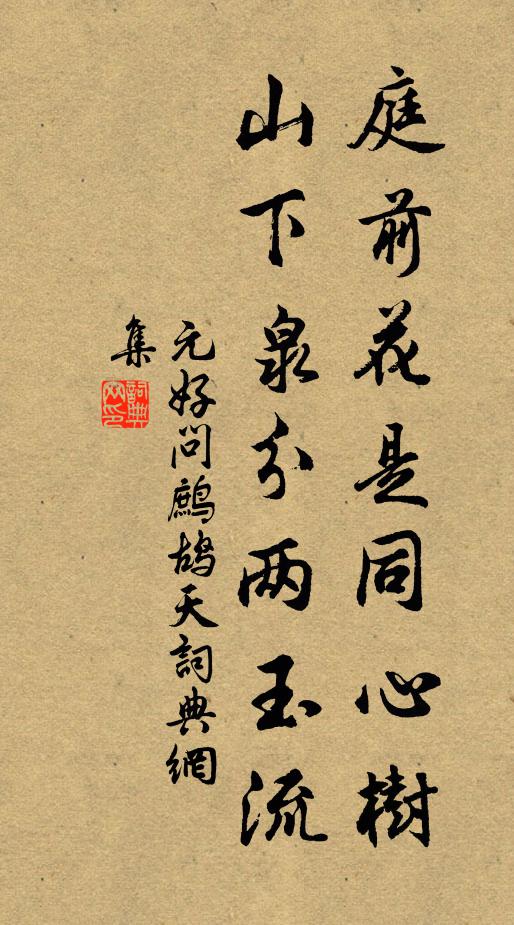 庭前花是同心樹
山下泉分两玉流
元好問鷓鴣天詞典網
集
詞典
网印